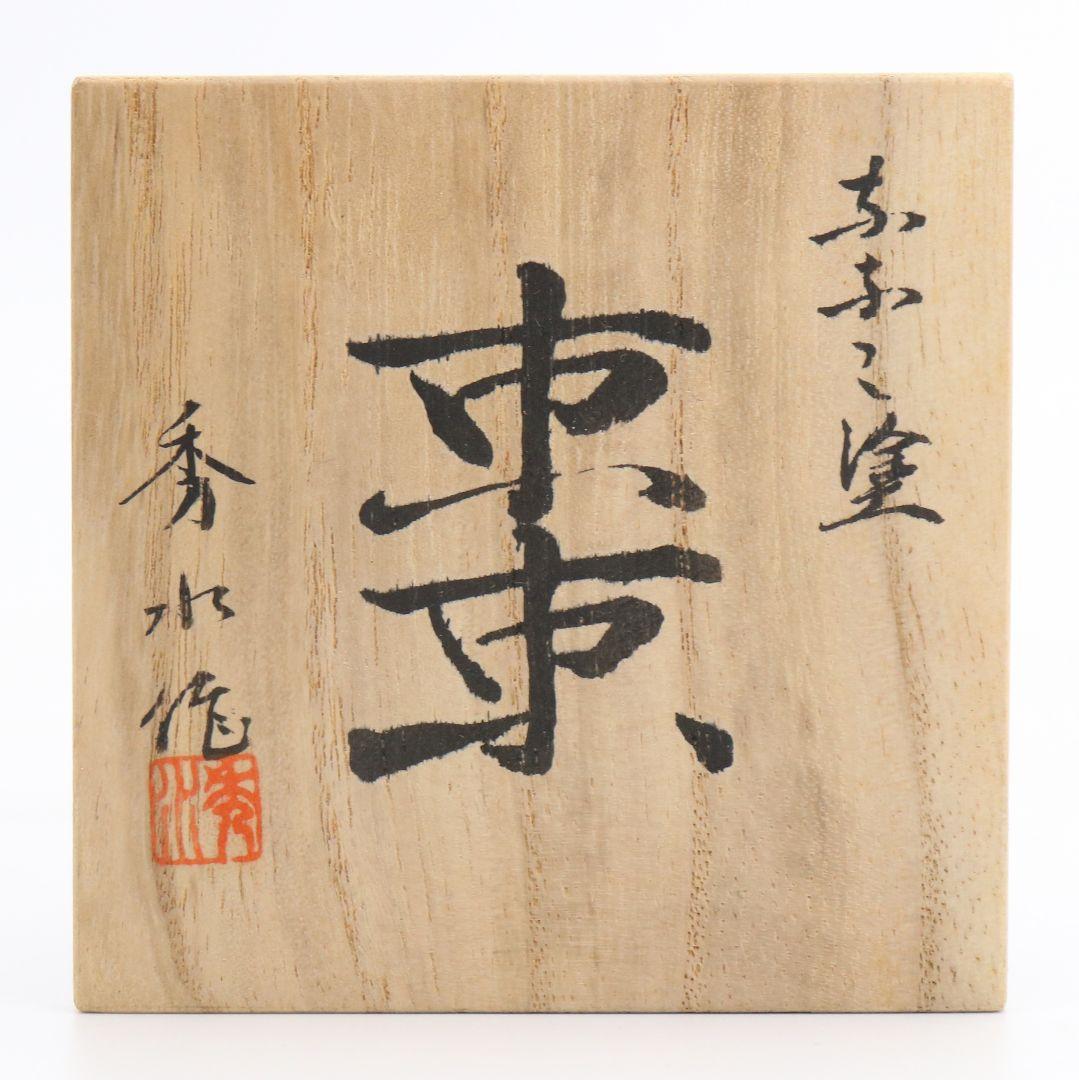 ななこ塗
棗
秀水作
秀水